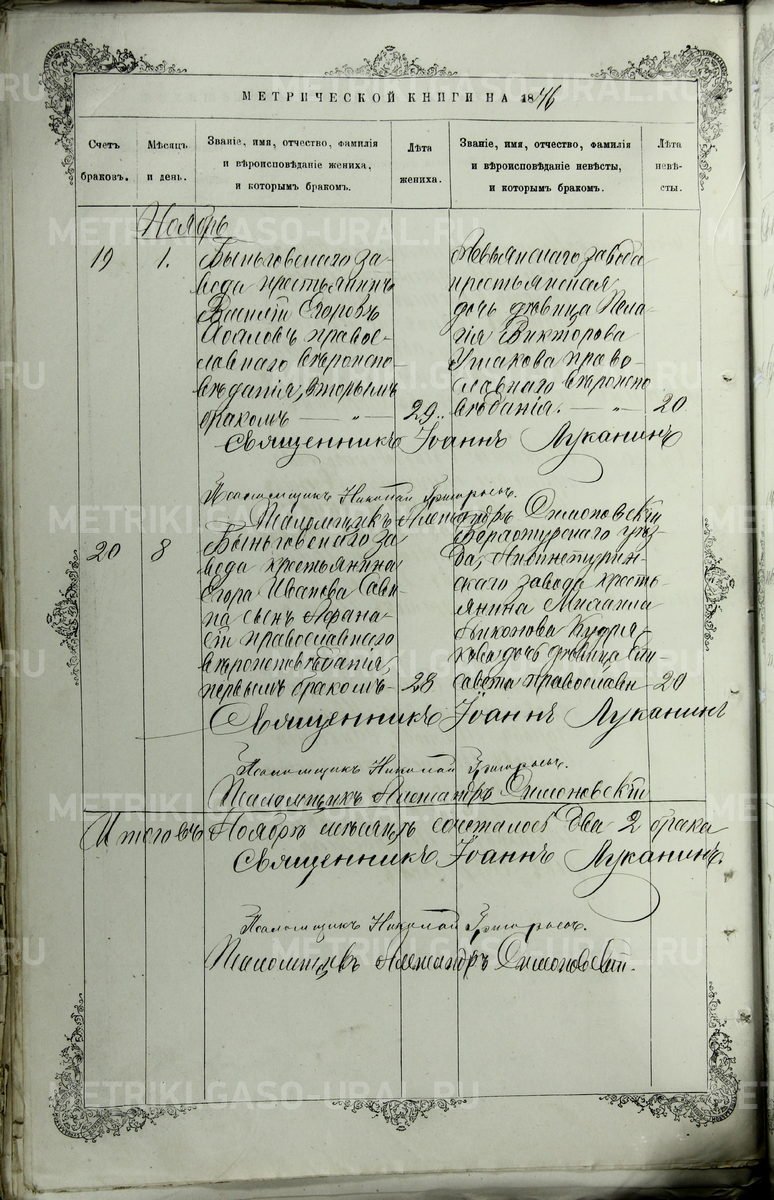 МЕТРИЧЕСКОЙ КНИГИ НА 1876
Счетъ браковъ.
Мѣсяцъ и день.
Званіе, имя, отчество, фамилія и вѣроисповѣданіе жениха, и которымъ бракомъ.
Лѣта жениха.
Званіе, имя, отчество, фамилія и вѣроисповѣданіе невѣсты, и которымъ бракомъ.
Лѣта невѣсты.
Ноябрь
19
1.
Быньговскаго за-
вода крестьянинъ
Василій Егоровъ
правос-
лавнаго вѣроиспо-
вѣданія, вторымъ
бракомъ — „ —
29.
Невьянскаго завода
крестьянская
дочь дѣвица Пела-
гія Викторова
Ушакова право-
славнаго вѣроиспо
вѣданія. — „ —
20
Священникъ Іоаннъ Луканинъ
Псаломщикъ Николай Григорьевъ.
Псаломщикъ Александръ Симоновскій
20
8
Быньговскаго за
вода крестьянина
Егора Иванова Сави-
на сынъ Афана-
сій православнаго
вѣроисповѣданія,
первымъ бракомъ-
28
Верхотурскаго уѣз-
да, Нивинетурин-
скаго завода кресть-
янина Михаила
Никонова
дочь дѣвица Ели-
савета православн-
20
Священникъ Іоаннъ Луканинъ
Псаломщикъ Николай Григорьевъ.
Псаломщикъ Александръ Симоновскій
Итого въ Ноябрѣ мѣсяцѣ сочеталось два 2 брака
Священникъ Іоаннъ Луканинъ.
Псаломщикъ Николай Григорьевъ.
Псаломщикъ Александръ Симоновскій.
METRIKI.GASO-URAL.RU